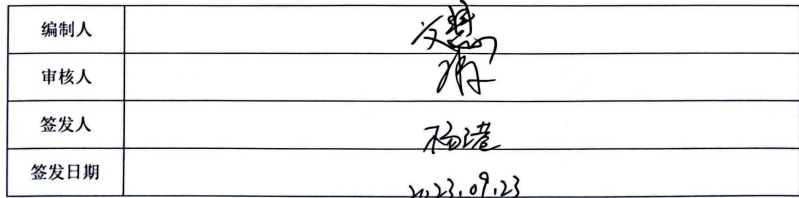 编制人
审核人
签发人 杨港
签发日期 2023.09.23